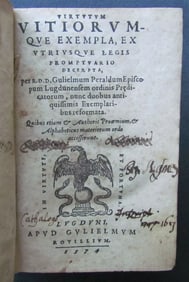 VIRTVTVM
VITIORVM-
QVE EXEMPLA, EX
VTRIVSQVE LEGIS
PROMPTVARIO
DECERPTA,
per R. D. D. Gulielmum Peraldum Episco-
pum Lugdunensem ordinis Prędi-
catorum, nunc duobus anti-
quissimis Exemplari-
bus reformata.
Quibus etiam & Authoris Prooemium, &
Alphabeticus materierum ordo
accesserunt.
IN VIRTVTE,
ET FORTVNA.
LVGDVNI,
APVD GVLIELMVM
ROVILLIVM.